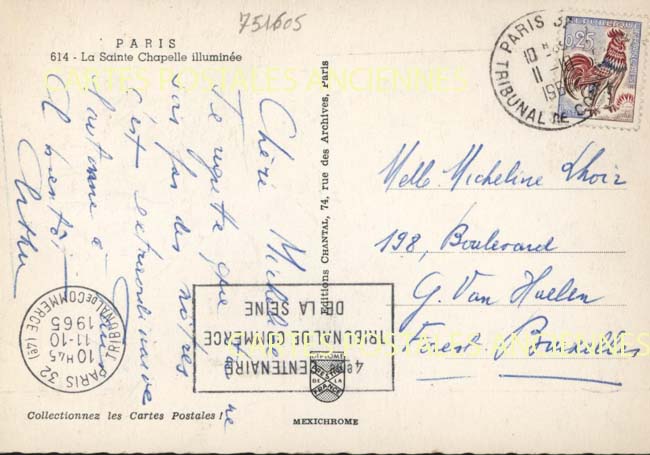 751605
PARIS
614 - La Sainte Chapelle illuminée
CARTES POSTALES ANCIENNES
Chère Micheline
Je regrette que tu ne
sois pas des nôtres
c'est extraordinaire
l'automne à Paris
A bientôt
Arthur
Editions CHANTAL, 74, rue des Archives, Paris
PARIS 32
TRIBUNAL DE CO
0,25
Melle Micheline Dhoir
198, Boulevard
G. Van Haelen
Forest Bruxelles
CARTES POSTALES ANCIENNES
PARIS 32
10H45
11-10
1965
TRIBUNAL DE COMMERCE (4E)
4eme CENTENAIRE
TRIBUNAL DE COMMERCE
DE LA SEINE
DE LA
FRANCE
Collectionnez les Cartes Postales !
MEXICHROME